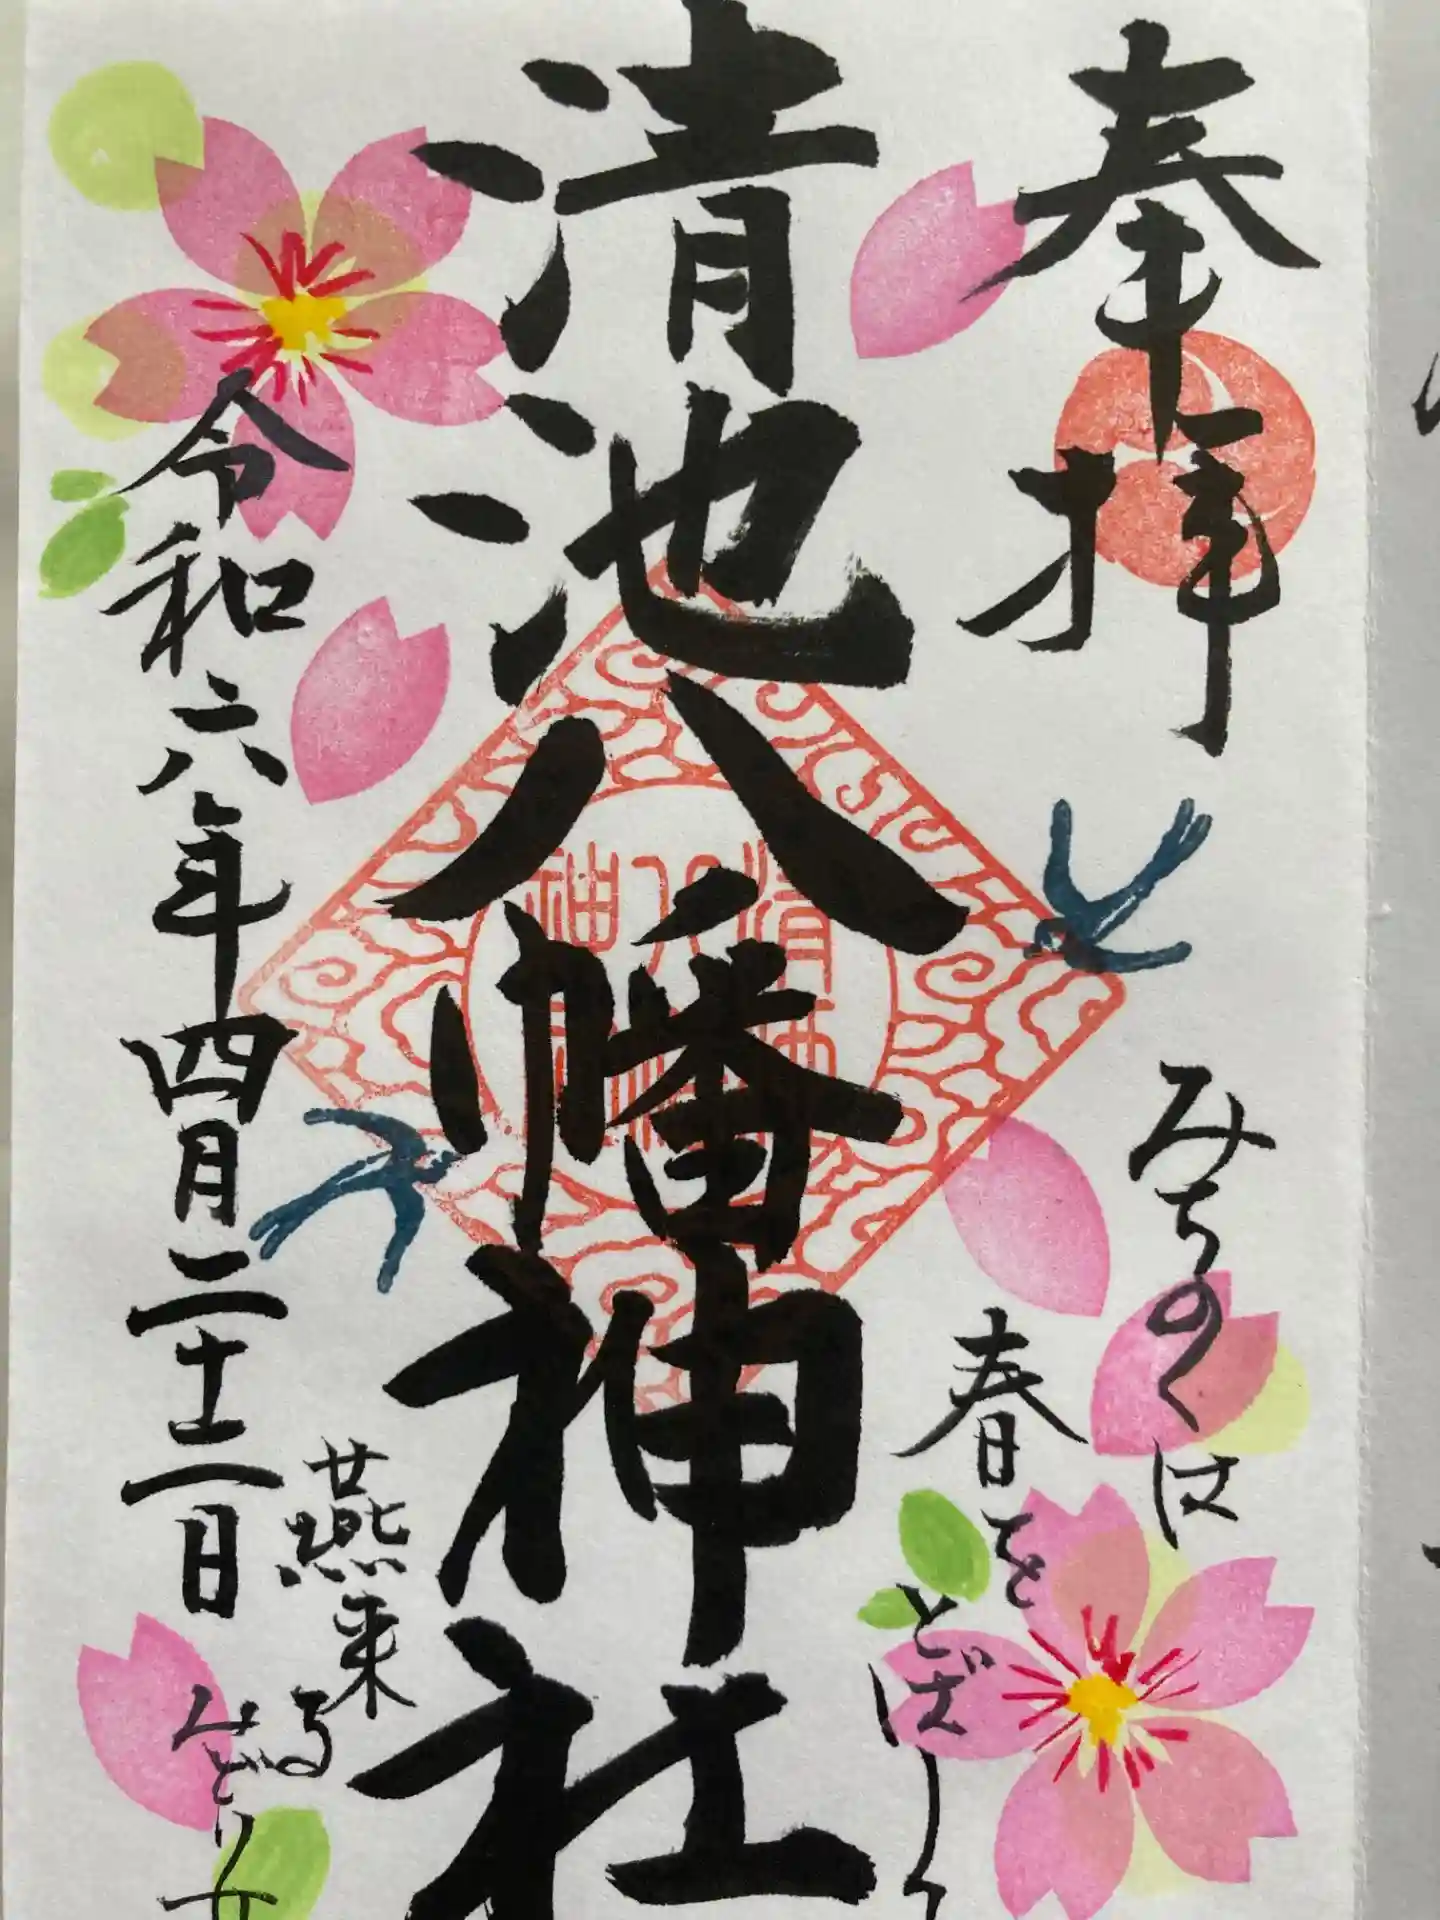 奉拝
みちのくは
春を
とばして
清池八幡神社
燕来る
みどり女
令和六年四月二十二日